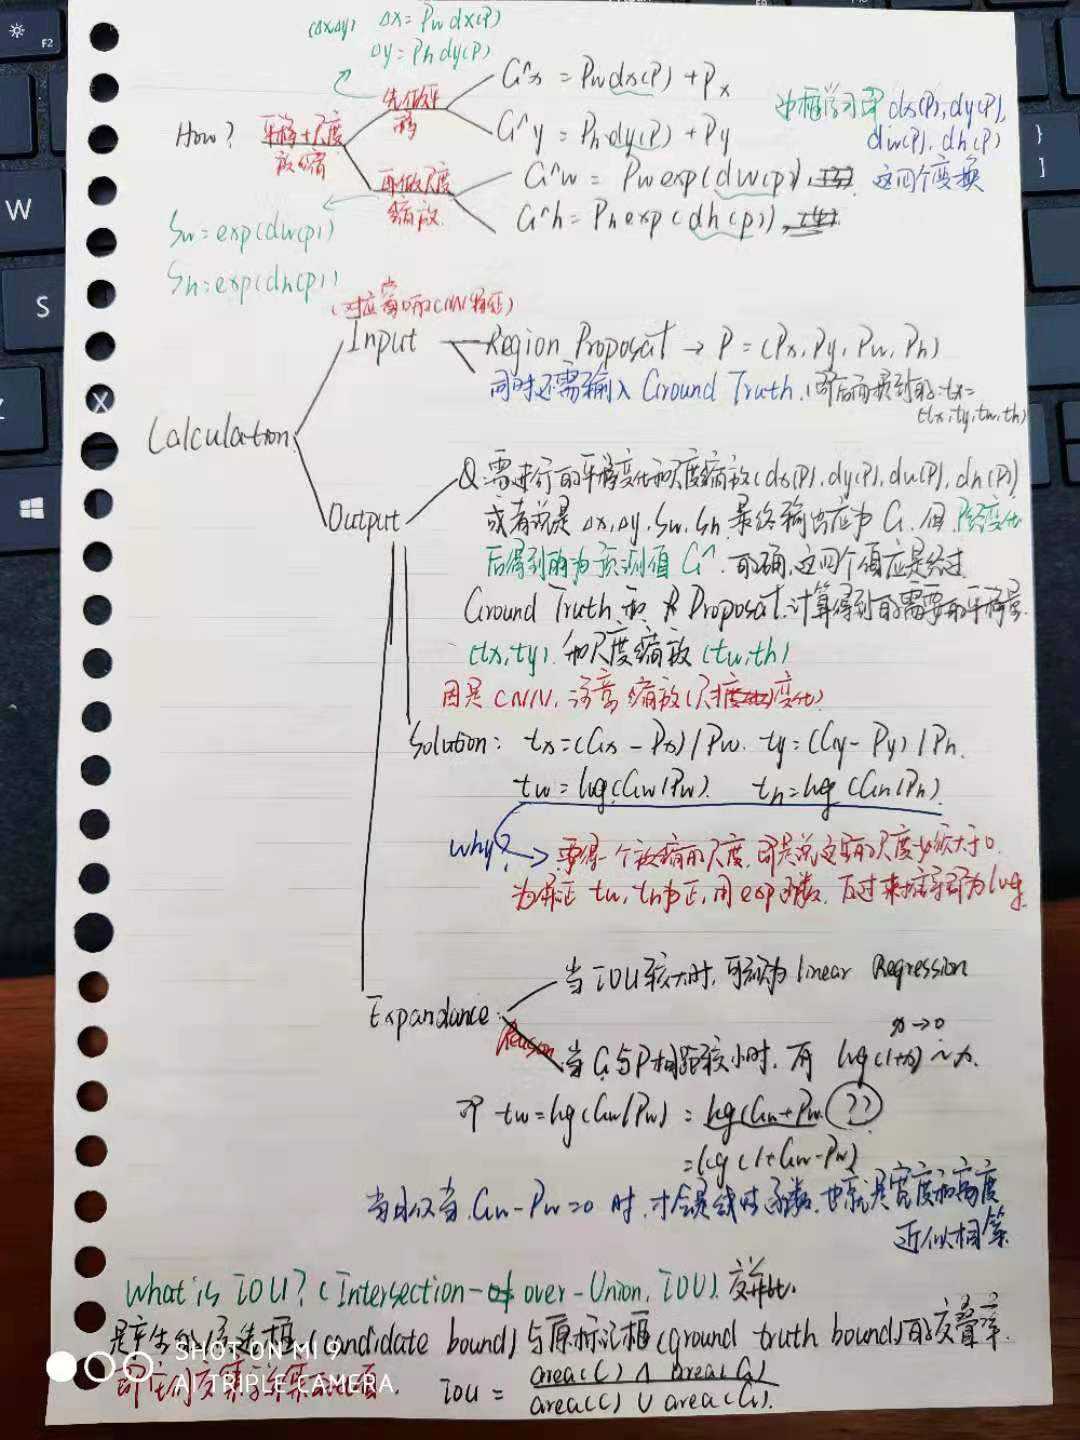 (Δx,Δy) Δx = Pw dx(P)
Δy = Ph dy(P)
G^x = Pw dx(P) + Px
先做平移
G^y = Ph dy(P) + Py
How? 平移+尺度放缩
边框学习即 dx(P), dy(P),
dw(P), dh(P)
这四个变换
再做尺度缩放
G^w = Pw exp(dw(P)),
G^h = Ph exp(dh(P)),
Sw = exp(dw(P))
Sh = exp(dh(P))
(对应窗口的CNN特征)
Input
Region Proposal → P = (Px, Py, Pw, Ph)
同时还需输入 Ground Truth, 即后面提到的 t* =
(tx, ty, tw, th)
Calculation
Output
需进行的平移变化和尺度缩放(dx(P), dy(P), dw(P), dh(P))
或者说是 Δx, Δy, Sw, Sh 最终输出应为 G, 但 P经变化
后得到的为预测值 G^. 的确, 这四个值应是经过
Ground Truth 和 Proposal 计算得到的需要的平移量
(tx, ty) 和尺度缩放 (tw, th)
因是 CNN, 注意缩放(尺度变化)
Solution: tx = (Gx - Px) / Pw. ty = (Gy - Py) / Ph.
tw = log(Gw/Pw). th = log(Gh/Ph).
Why?
要得一个放缩的尺度, 即是说这里的尺度必须大于0.
为保证 tw, th为正, 用exp函数, 反过来推导即为log.
Expandance
当 IOU 较大时, 可视为 linear Regression
Reason
x→0
当 G 与 P 相距较小时, 有 log(1+x) ~ x.
即 tw = log(Gw/Pw) = log(Gw+Pw (??)
= log(1+Gw-Pw)
当且仅当 Gw-Pw=0 时, 才会是线性函数, 也就是宽度和高度
近似相等
What is IOU? (Intersection-of over-Union, IOU). 交并比.
是产生的候选框(candidate bound)与原标记框(ground truth bound)的交叠率.
即它们交集与并集的比值.
IOU = area(C) ∩ area(G)
area(C) ∪ area(G).
SHOT ON MI 9
AI TRIPLE CAMERA
F2
W
S
X
Z
}
]